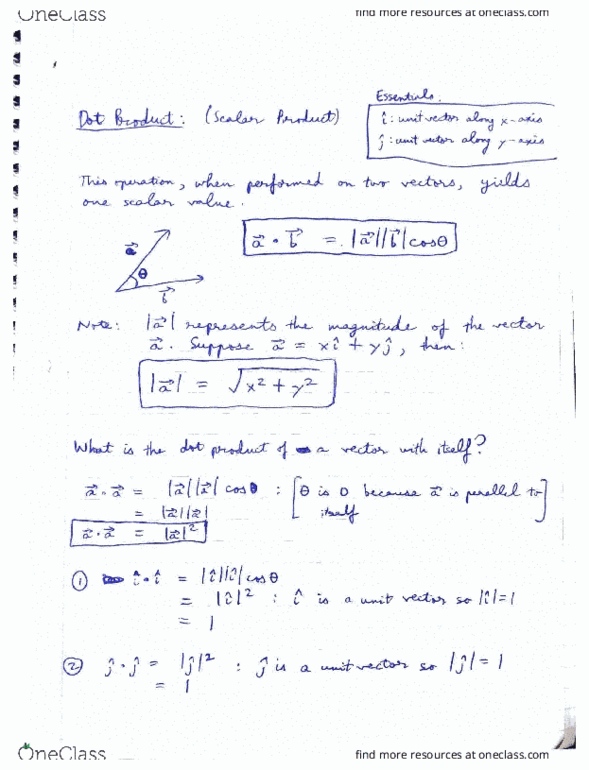 OneClass
find more resources at oneclass.com
Essentials.
Dot Product: (Scalar Product)
î: unit vector along x-axis
ĵ: unit vector along y-axis
This operation, when performed on two vectors, yields
one scalar value.
a⃗ · b⃗ = |a⃗||b⃗|cosθ
a⃗
θ
b⃗
Note: |a⃗| represents the magnitude of the vector
a⃗. Suppose a⃗ = xî + yĵ, then:
|a⃗| = √(x² + y²)
What is the dot product of a vector with itself?
a⃗ · a⃗ = |a⃗||a⃗| cosθ : [θ is 0 because a⃗ is parallel to
itself]
= |a⃗||a⃗|
a⃗ · a⃗ = |a⃗|²
① î · î = |î||î|cosθ
= |î|² : î is a unit vector so |î|=1
= 1
② ĵ · ĵ = |ĵ|² : ĵ is a unit vector so |ĵ| = 1
= 1
OneClass
find more resources at oneclass.com